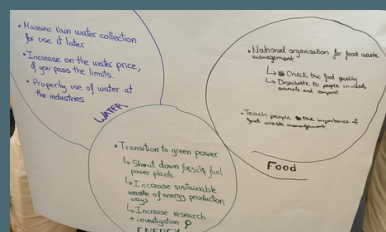 • Massive rain water collection
for use it later
• Increase on the water price,
if you pass the limits.
• Property use of water at
the industries
WATER
• National organisation for food waste
management
↳ Check the food quality
↳ Distribute to people in need,
animals and compost.
• Teach people the importance of
food waste management
Food
• Transition to green power
↳ Shout down fossils fuel
power plants
↳ Increase sustainable
of energy production
ways
↳ Increase research
+ investigation
ENERGY